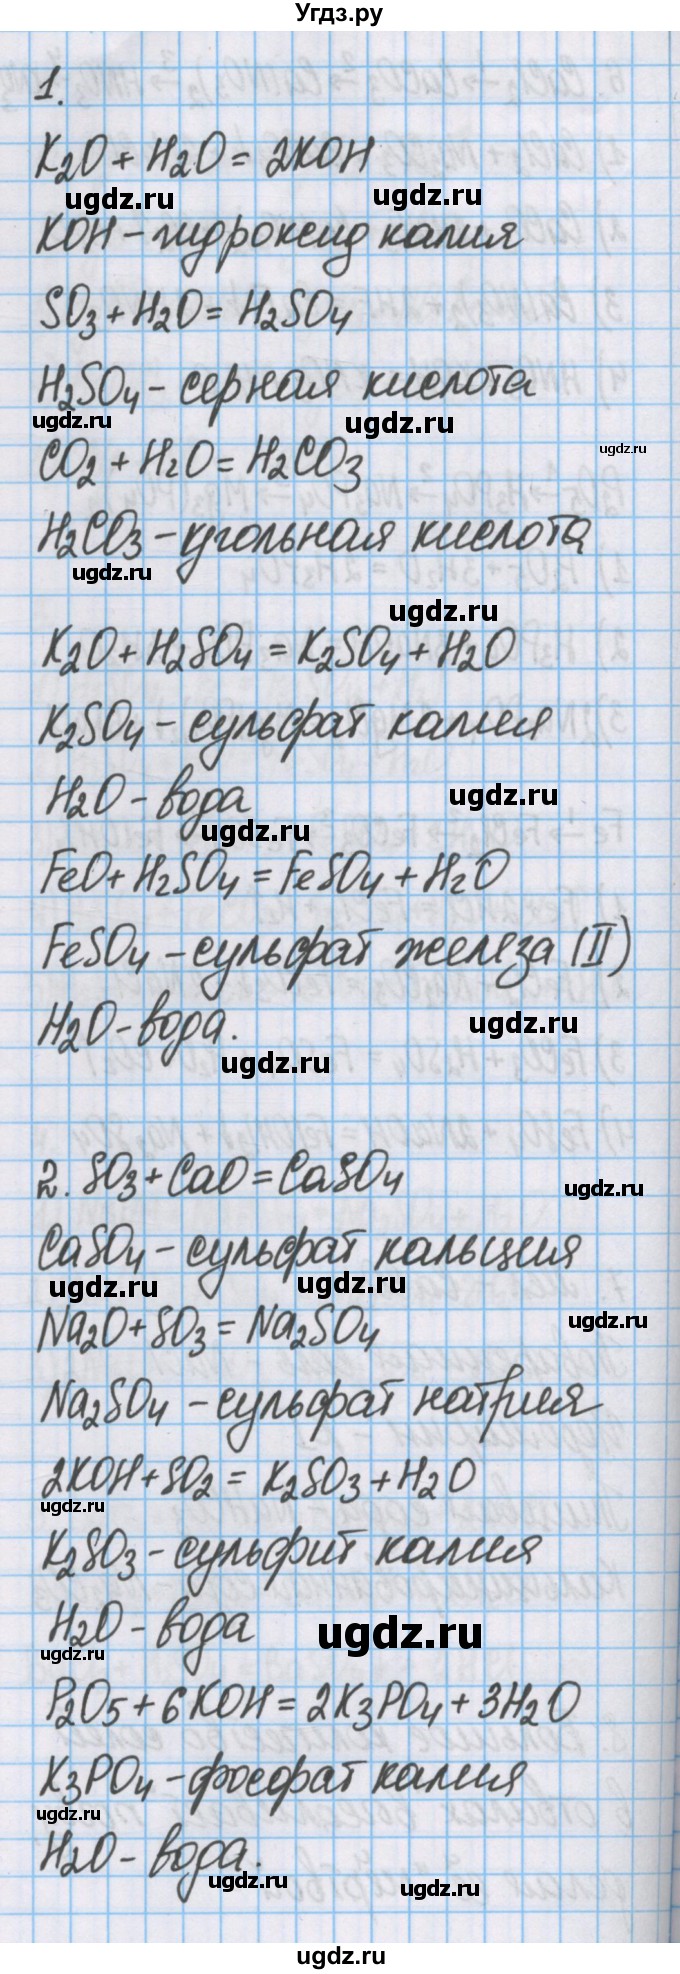 Угдз.ру
1.
K₂O + H₂O = 2KOH
ugdz.ru ugdz.ru
KOH - гидроксид калия
SO₃ + H₂O = H₂SO₄
H₂SO₄ - серная кислота
ugdz.ru ugdz.ru ugdz.ru
CO₂ + H₂O = H₂CO₃
H₂CO₃ - угольная кислота
ugdz.ru
ugdz.ru
K₂O + H₂SO₄ = K₂SO₄ + H₂O
K₂SO₄ - сульфат калия
H₂O - вода
ugdz.ru
ugdz.ru
FeO + H₂SO₄ = FeSO₄ + H₂O
FeSO₄ - сульфат железа (II)
H₂O - вода.
ugdz.ru
ugdz.ru
2. SO₃ + CaO = CaSO₄
ugdz.ru
CaSO₄ - сульфат кальция
ugdz.ru ugdz.ru
ugdz.ru
Na₂O + SO₃ = Na₂SO₄
Na₂SO₄ - сульфат натрия
2KOH + SO₂ = K₂SO₃ + H₂O
ugdz.ru
K₂SO₃ - сульфит калия
H₂O - вода
ugdz.ru
ugdz.ru
P₂O₅ + 6KOH = 2K₃PO₄ + 3H₂O
K₃PO₄ - фосфат калия
ugdz.ru
H₂O - вода.
ugdz.ru ugdz.ru
ugdz.ru